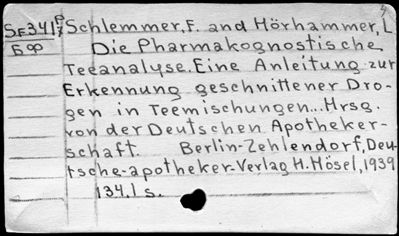 SF341 P/7 Schlemmer, F. and Hörhammer, L
БФ Die Pharmakognostische
Teeanalyse. Eine Anleitung zur
Erkennung geschnittener Dro-
gen in Teemischungen... Hrsg.
von der Deutschen Apotheker-
schaft. Berlin-Zehlendorf, Deu-
tsche-apotheker-Verlag H. Hösel, 1939
134.1 s.